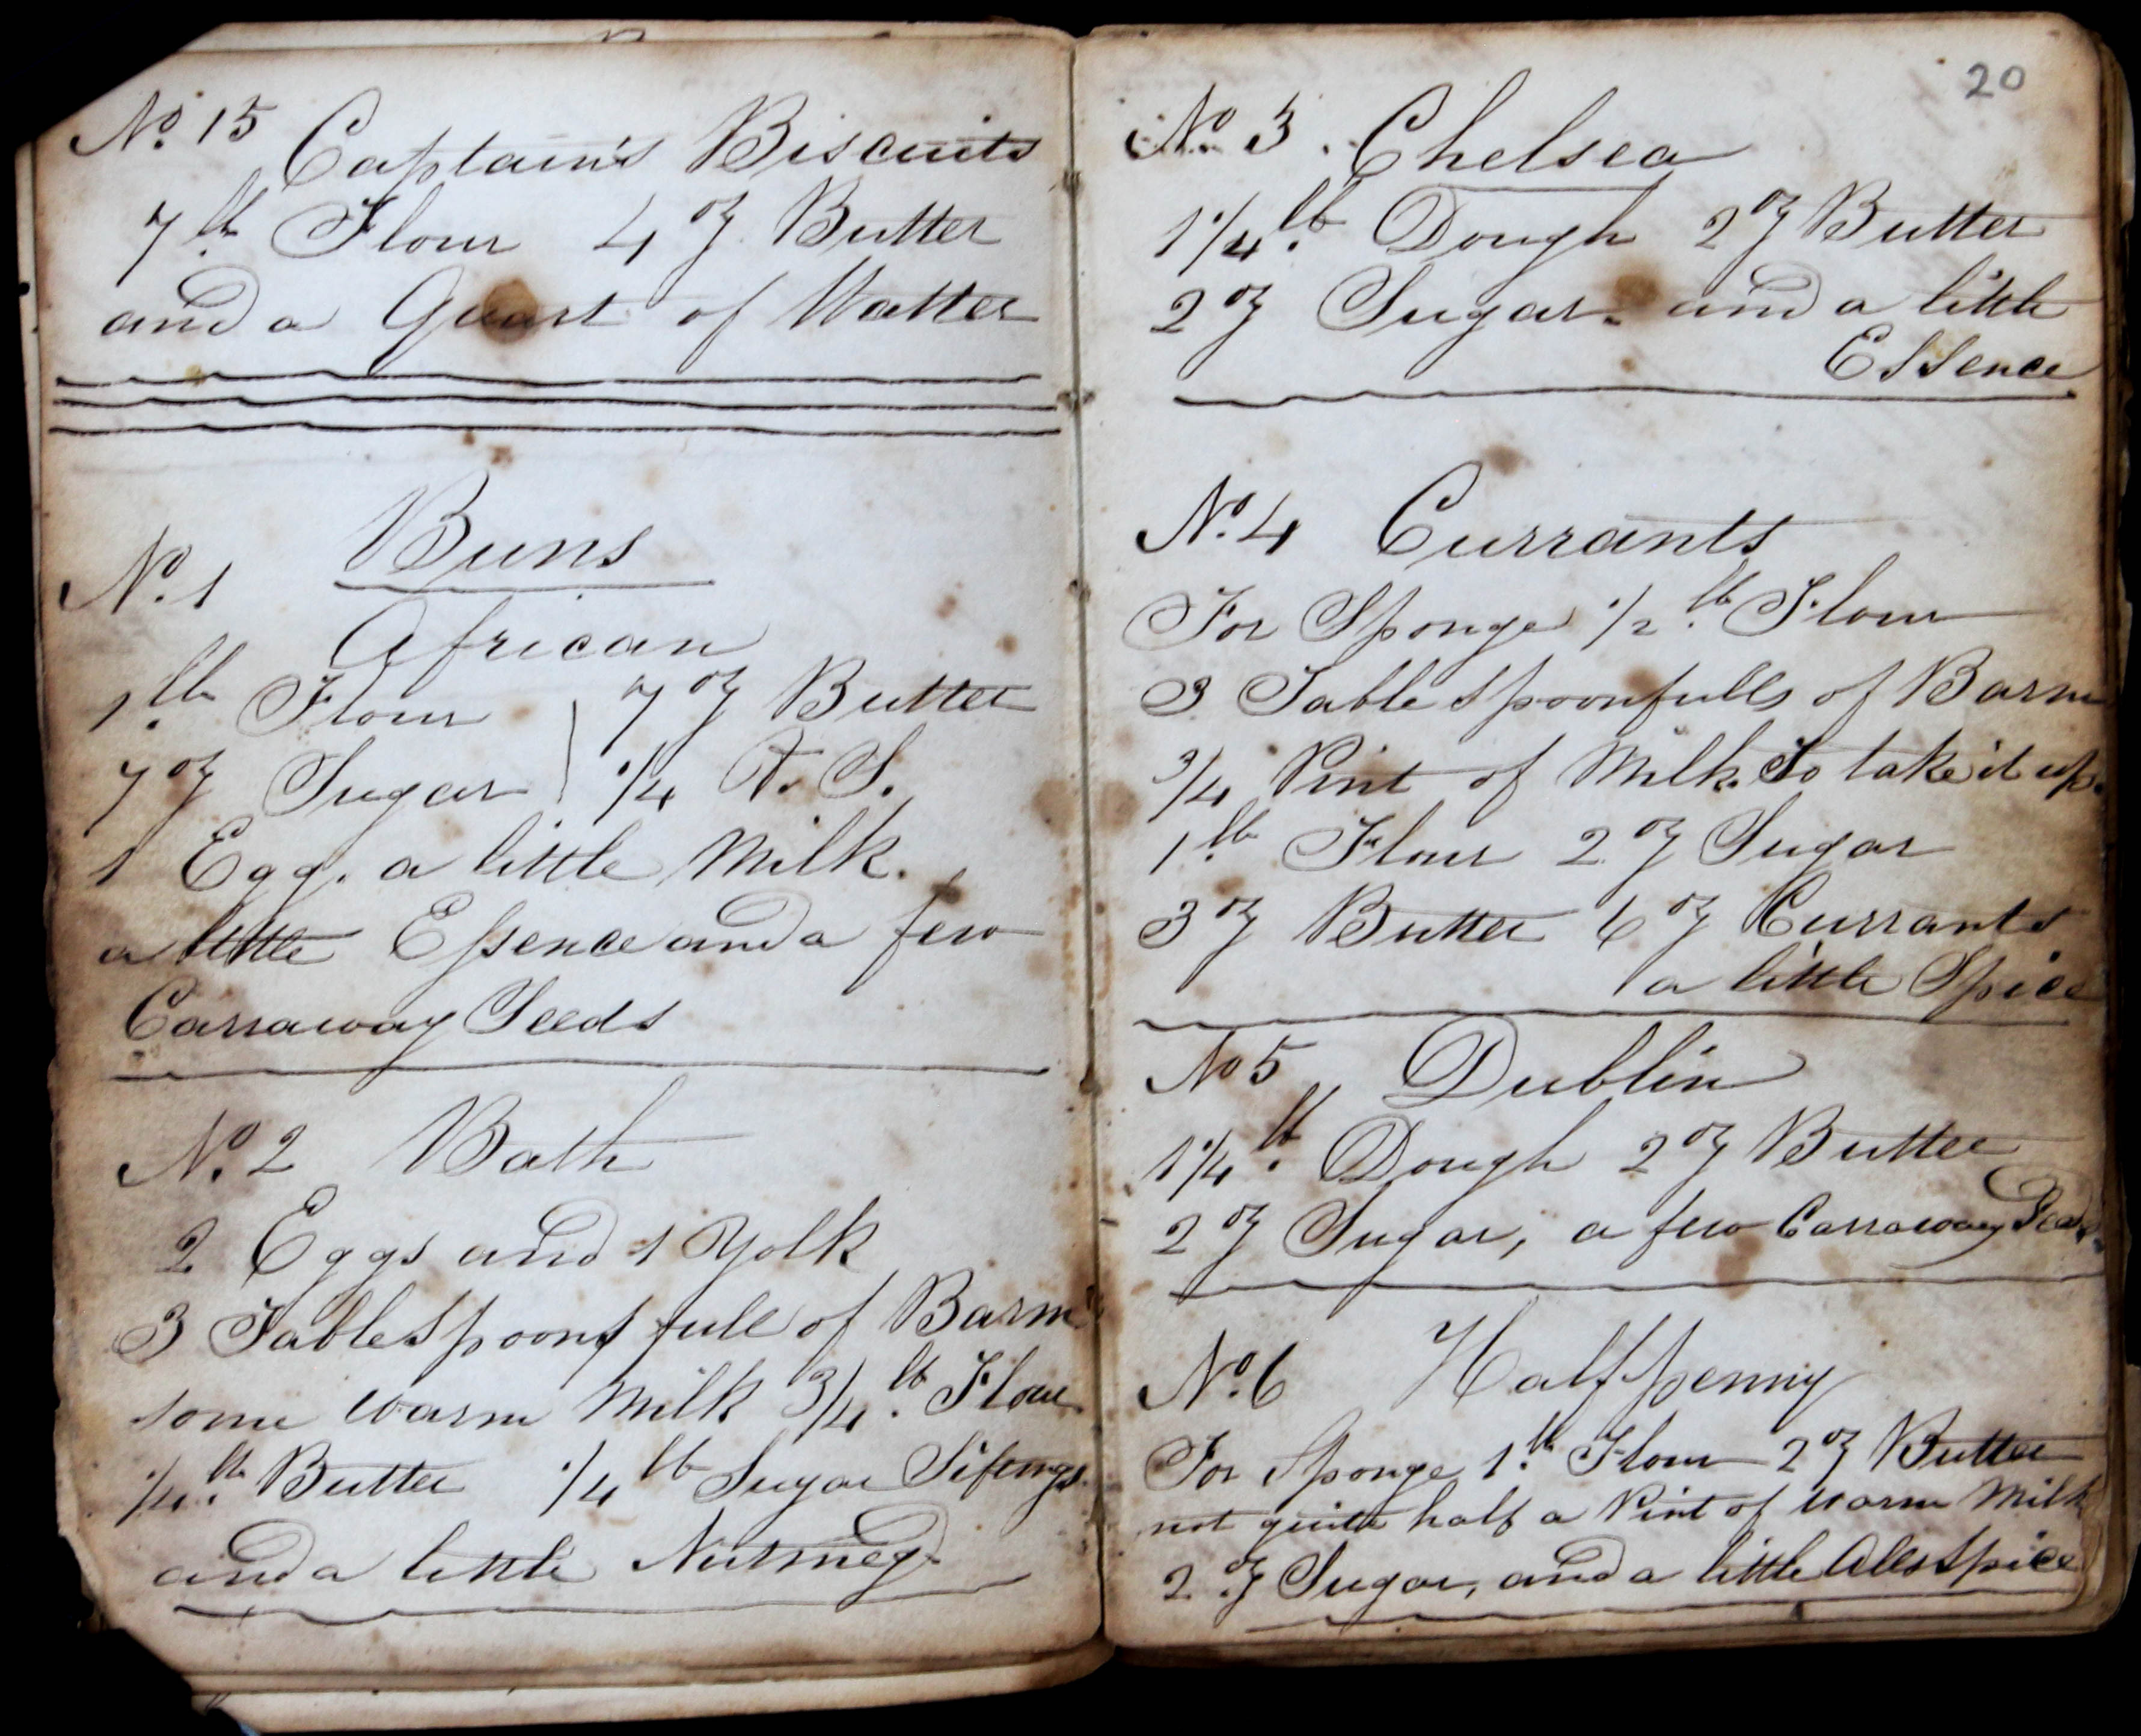 No. 15
Captain's Biscuits
7 lb Flour 4 oz Butter
and a Quart of Watter
Buns
No. 1
African
1 lb Flour 7 oz Butter
7 oz Sugar 1/4 T. S.
1 Egg. a little Milk.
a little Essence and a few
Carraway Seeds
No. 2 Bath
2 Eggs and 1 Yolk
3 Table Spoons full of Barm
some warm Milk 3/4 lb Flour
1/4 lb Butter 1/4 lb Sugar Sifings
and a little Nutmeg
20
No. 3. Chelsea
1 1/4 lb Dough 2 oz Butter
2 oz Sugar. and a little
Essence
No. 4 Currants
For Sponge 1/2 lb Flour
3 Table Spoonfulls of Barm
3/4 Pint of Milk. To take it up.
1 lb Flour 2 oz Sugar
3 oz Butter 6 oz Currants
a little Spice
No 5 Dublin
1 1/4 lb Dough 2 oz Butter
2 oz Sugar, a few Carraway Seeds.
No. 6 Halfpenny
For Sponge 1 lb Flour 2 oz Butter
not quite half a Pint of warm Milk
2 oz Sugar, and a little Allspice